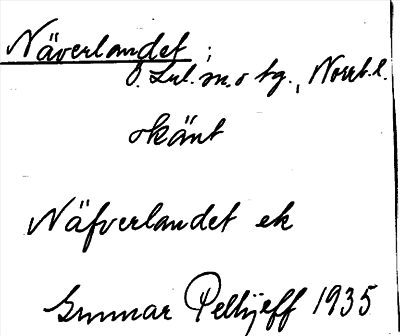 Näverlandet ;
Ö. Lul. sn. o tg., Norrb. l.
okänt
Näfverlandet ek
Gunnar Pellijeff 1935